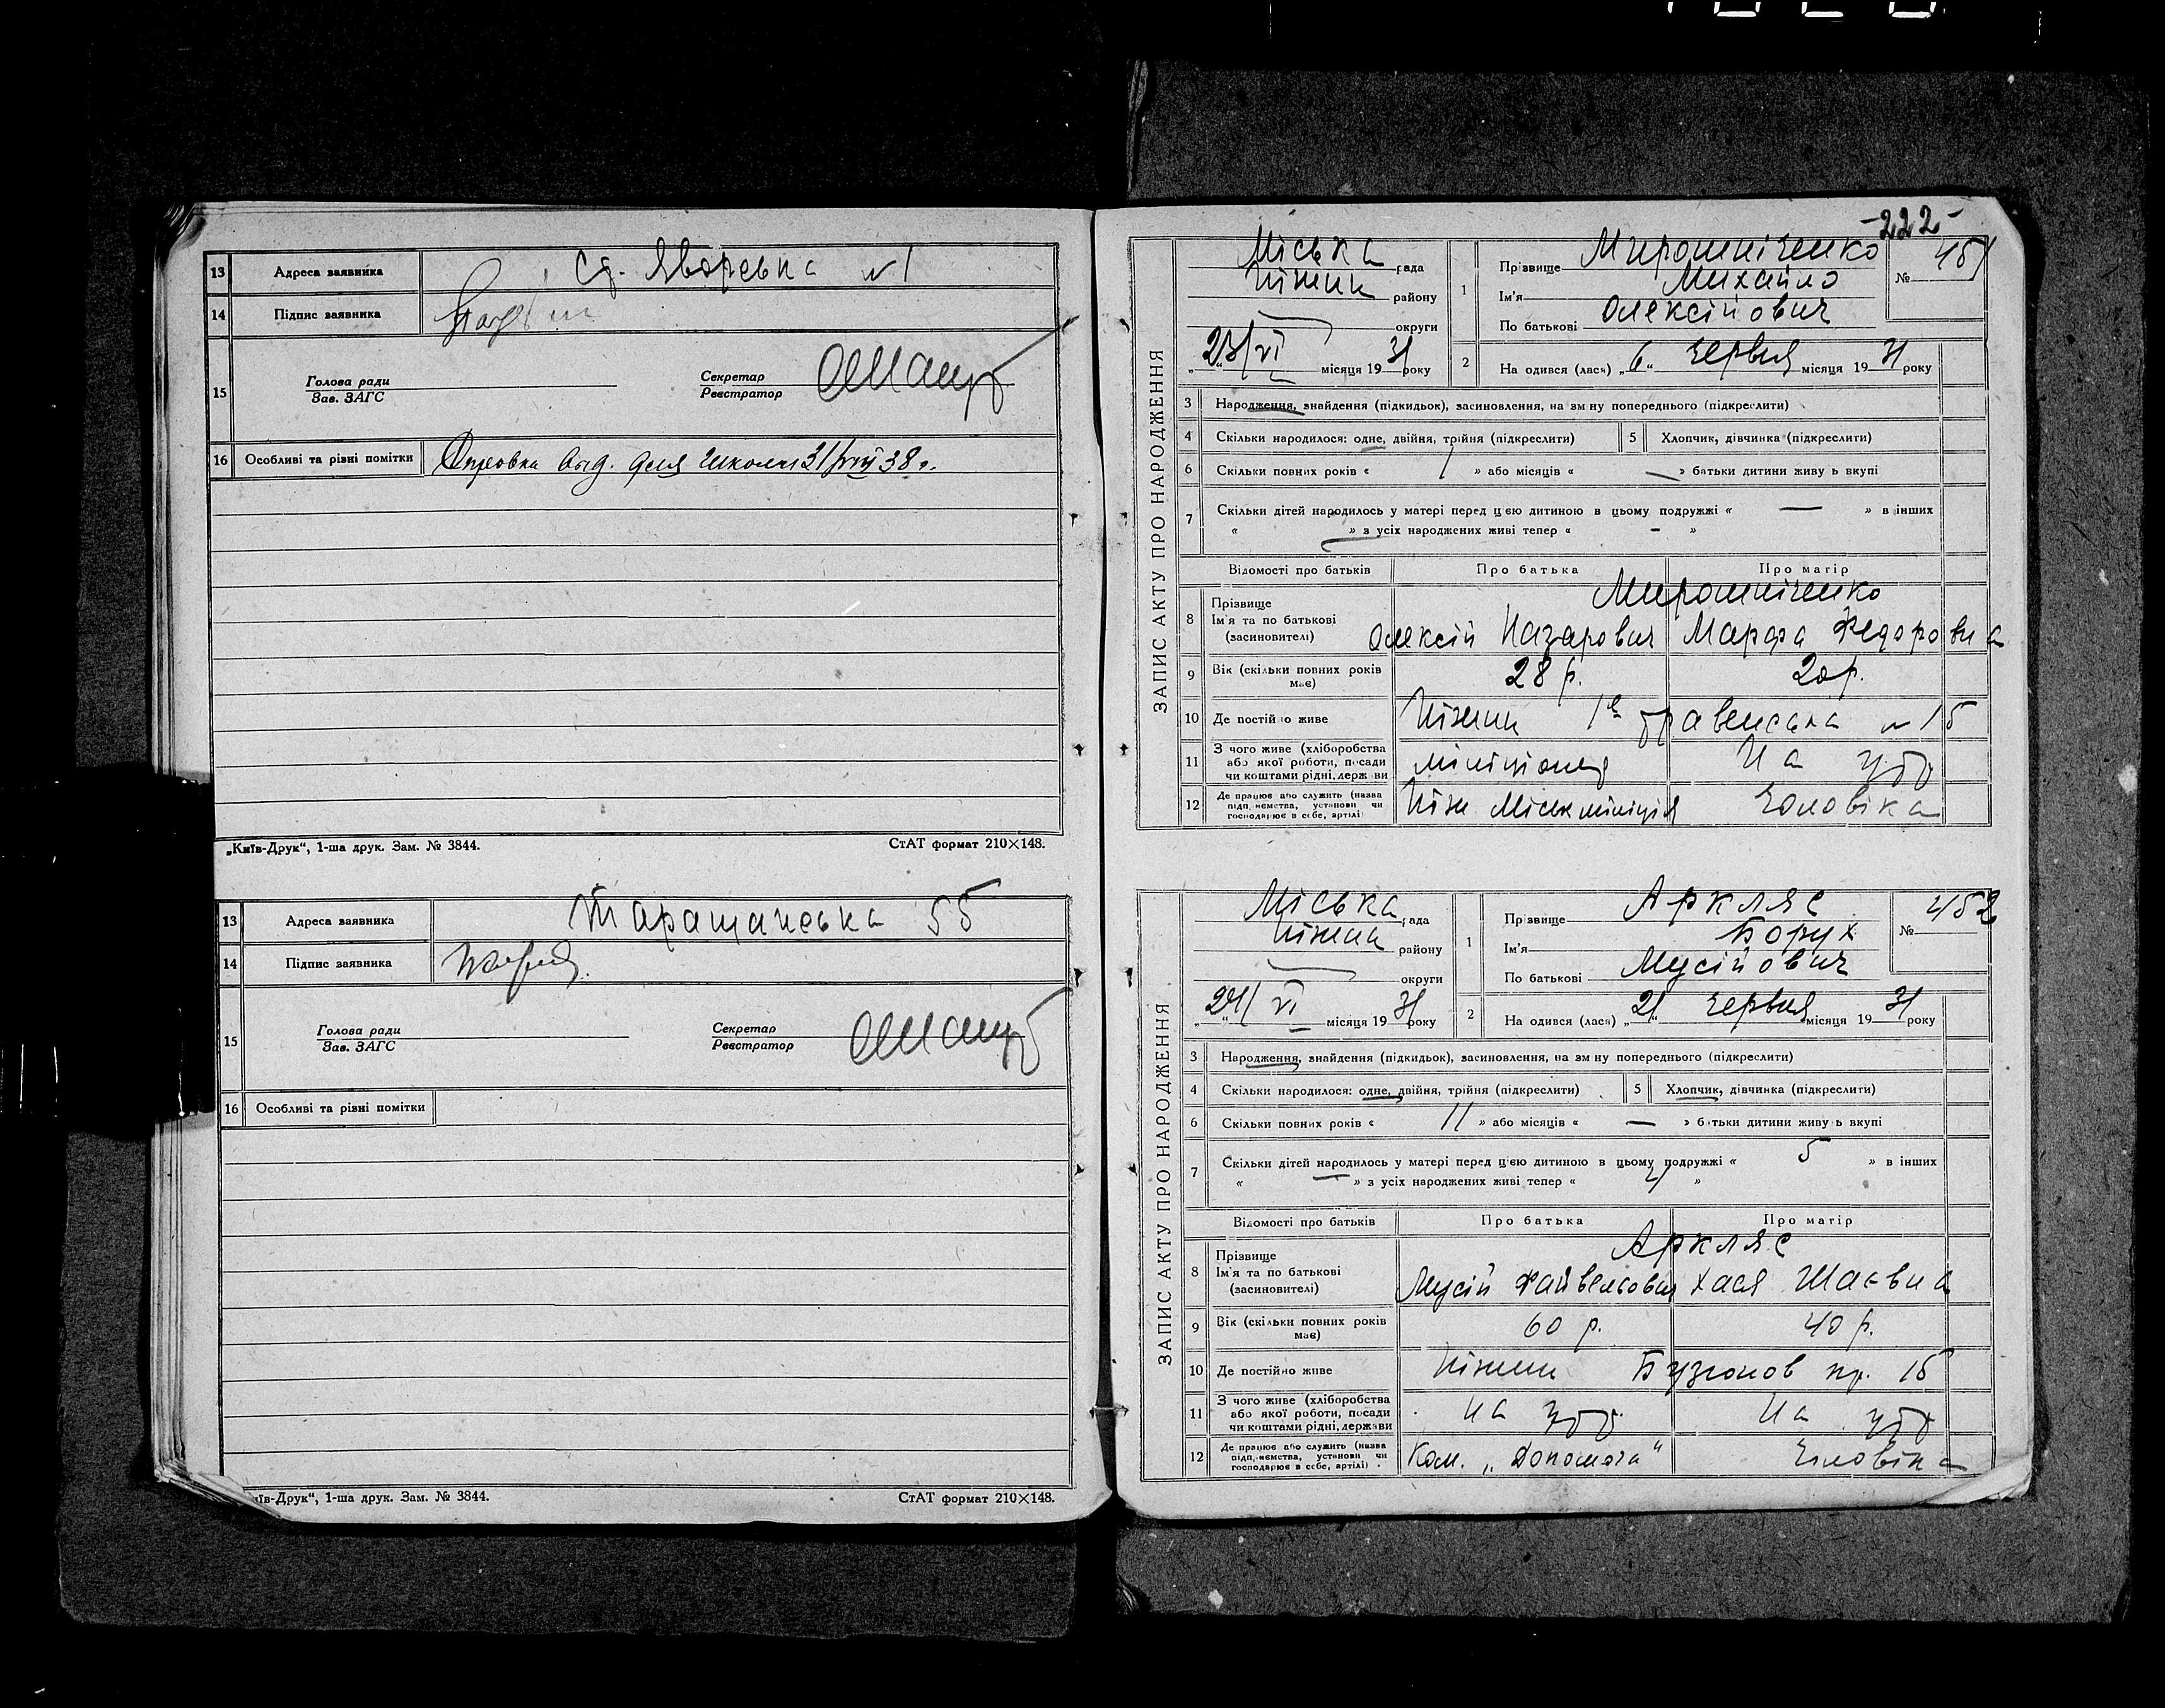 13 Адреса заявника Ст. Яворська №1
14 Підпис заявника
15 Голова ради Зав. ЗАГС Секретар Реєстратор
16 Особливі та різні помітки Справка выд. для школы 31/VIII 38 г.
„Київ-Друк“, 1-ша друк. Зам. № 3844. СтАТ формат 210×148.
13 Адреса заявника Таращанська 55
14 Підпис заявника
15 Голова ради Зав. ЗАГС Секретар Реєстратор
16 Особливі та різні помітки
їв-Друк“, 1-ша друк. Зам. № 3844. СтАТ формат 210×148.
-222-
ЗАПИС АКТУ ПРО НАРОДЖЕННЯ
Міська рада
Ніжин району
округи
„23/VI“ місяця 1931 року
1 Прізвище Мирошніченко
Ім'я Михайло
По батькові Олексійович
№ 451
2 Народився (лася) „6“ червня місяця 1931 року
3 Народження, знайдення (підкидьок), засиновлення, на зміну попереднього (підкреслити)
4 Скільки народилося: одне, двійня, трійня (підкреслити) 5 Хлопчик, дівчинка (підкреслити)
6 Скільки повних років « 1 » або місяців « — » батьки дитини живуть вкупі
7 Скільки дітей народилось у матері перед цією дитиною в цьому подружжі « — » в інших
« » з усіх народжених живі тепер « - »
Відомості про батьків Про батька Про матір
8 Прізвище Ім'я та по батькові (засновителі) Мирошніченко
Олексій Назарович Марфа Федоровна
9 Вік (скільки повних років має) 28 р. 20 р.
10 Де постійно живе Ніжин 1е травенська №15
11 З чого живе (хліборобства або якої роботи, посади чи коштами рідні, держави міліціонер На утр
12 Де працює або служить (назва підприємства, установи чи господарює в себе, артілі) Ніж. Міськміліція Чоловіка
ЗАПИС АКТУ ПРО НАРОДЖЕННЯ
Міська рада
Ніжин району
округи
„24/VI“ місяця 1931 року
1 Прізвище Аркляс
Ім'я Борух
По батькові Мусійович
№ 452
2 Народився (лася) „21“ червня місяця 1931 року
3 Народження, знайдення (підкидьок), засиновлення, на зміну попереднього (підкреслити)
4 Скільки народилося: одне, двійня, трійня (підкреслити) 5 Хлопчик, дівчинка (підкреслити)
6 Скільки повних років « 11 » або місяців « — » батьки дитини живуть вкупі
7 Скільки дітей народилось у матері перед цією дитиною в цьому подружжі « 5 » в інших
« — » з усіх народжених живі тепер « »
Відомості про батьків Про батька Про матір
8 Прізвище Ім'я та по батькові (засиновителі) Аркляс
Мусій Файвельович Хася Шаевна
9 Вік (скільки повних років має) 60 р. 40 р.
10 Де постійно живе Ніжин пр. 15
11 З чого живе (хліборобства або якої роботи, посади чи коштами рідні, держави На утр На утр
12 Де працює або служить (назва підприємства, установи чи господарює в себе, артілі) Ком. „Допомога“ Чоловіка